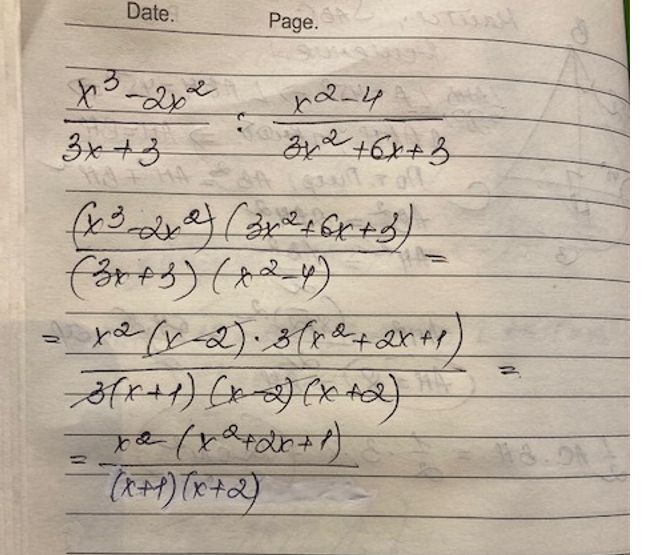 Date. Page.
x³-2x²/3x+3 : x²-4/3x²+6x+3
(x³-2x²)(3x²+6x+3)/(3x+3)(x²-4) =
= x²(x-2)·3(x²+2x+1)/3(x+1)(x-2)(x+2) =
= x²(x²+2x+1)/(x+1)(x+2)